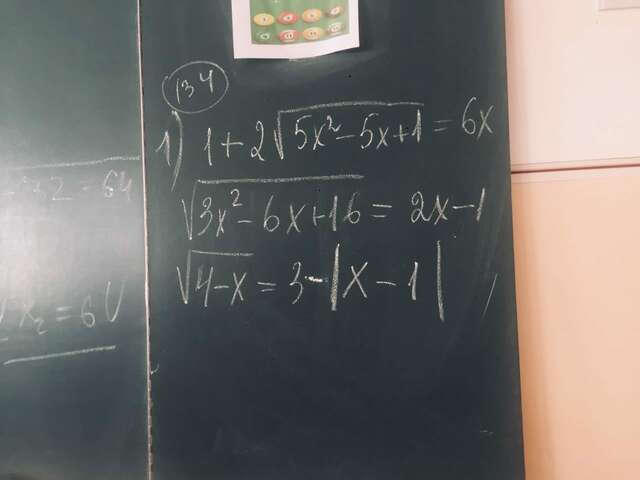 134
1) 1+2√(5x²-5x+1) = 6x
√(3x²-6x+16) = 2x-1
√(4-x) = 3-|x-1|
x₂ = 6